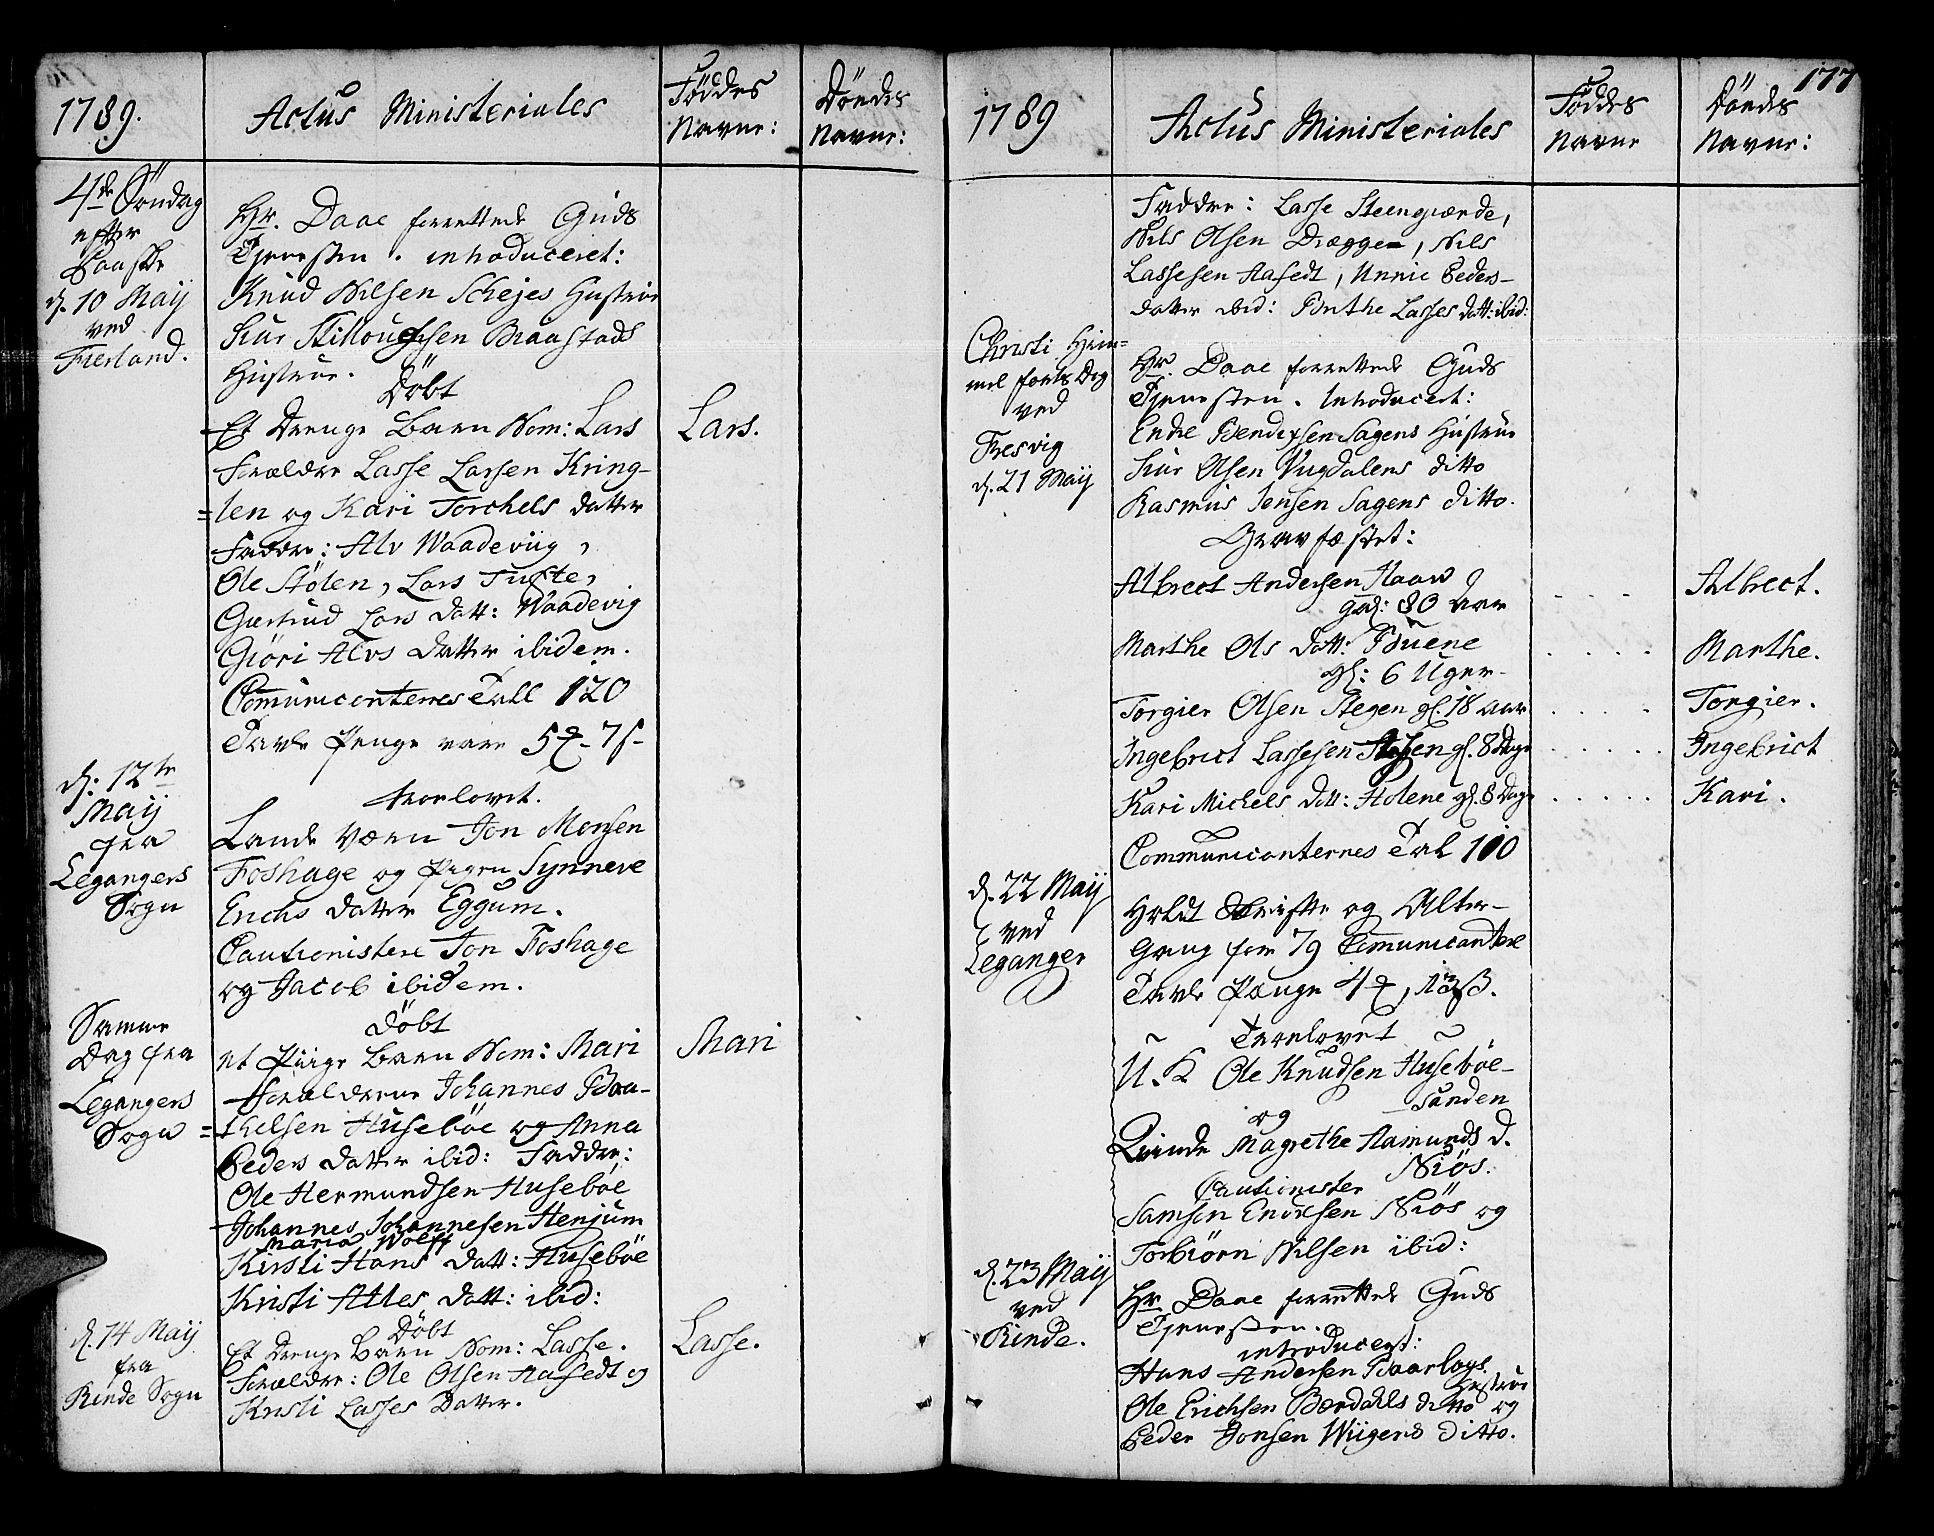 1789.
Actus Ministeriales
Föddes
Navne:
Döndes
Navne:
4de Söndag
efter
Paaske
d. 10 Maij
ved
Fierland.
Hr. Daae forrettede Guds
Tjenesten. introduceret:
Knud Nilsen Schejes Hustrue
Hustrue.
Döbt
Et Drenge Barn Nom: Lars
Lars.
Forældre Lasse Larsen Kring-
=len og Kari Torchels datter
Faddre: Alv Waadeviig,
Ole Stölen, Lars Tufte,
Giertrud Lars datt: Waadevig
Giöri Alvs datter ibidem.
Communicanternes Tall 120
Tavle Penge vare 5 - 7 s-
d. 12te
Maij
fra
Legangers
Sogn
Trorlovet.
Lande Værn Jon Monsen
Foshage og Pigen Synneve
Erichs datter Eggum.
Cautionistere Jon Foshage
og Jacob ibidem.
Samme
Dag fra
Legangers
Sogn
Döbt
et Piige Barn Nom: Mari
Mari
Forælderne Johannes Baa-
=thelsen Huseböe og Anna
Peders datter ibid: Faddre:
Ole Hermundsen Huseböe
Johannes Johannesen Henjum
Maria Wolff
Kirsti Hans datt: Huseböe
Kristi Atles datt: ibid:
d. 14 Maij
fra
Rinde Sogn
Döbt
Et Drenge Barn Nom: Lasse.
Lasse.
Forældre: Ole Olsen Aafedt og
Kristi Lasses Datter.
177
1789
Actus Ministeriales
Föddes
Navne
Döndes
Navne:
Faddre: Lasse Steengierde,
Nils Olsen Dræggen, Nils
Lassesen Aafedt, Unnie Peders-
datter ibid: Brithe Lasses datt: ibid:
Christi Him=
mel farts Dag
ved
Fresvig
d. 21 Maij
Hr. Daae forrettede Guds
Tjenesten. Introducert:
Endre Bendixsen Sagens Hustrue
Iver Olsen Vugdalens ditto
Rasmus Jensen Sagens ditto.
Gravfæstet:
Albrect Andersen Haaw
gal: 80 Aar
Albrect.
Marthe Ols datt: Buene
gl: 6 Uger-
Marthe.
Torgier Olsen Stegen gl. 18 aar
Torgier.
Ingebrict Lassesen gl. 8 Dage
Ingebrict
Kari Michels datt: Holene gl. 8 Dage
Kari.
Communicanternes Tal 100
d. 22 Maij
ved
Leganger
Holdt Skrifte og Alter-
Gang for 79 Communicantere
Tavle Penge 4, 13 ß.
~ Trorlovet ~
U. K Ole Knudsen Huseböe-
sanden
og
Qvinde Magrethe Aamunds d.
Niös.
Cautionister
Samson Endresen Niös og
Torbiörn Nilsen ibid:
d. 23 Maij
ved
Rinde.
Hr Daae forrettede Guds
Tjenesten.
introducert:
Hans Andersen Baarlogs
Hustrue
Ole Erichsen Bærdahls ditto og
Peder Jonsen Wiigens Ditto.